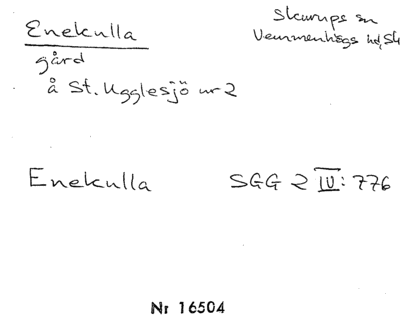 Enekulla
Skurups sn
Vemmenhögs hd, Sk
gård
å St. Ugglesjö nr 2
Enekulla SGG 2 IV: 776
Nr 16504